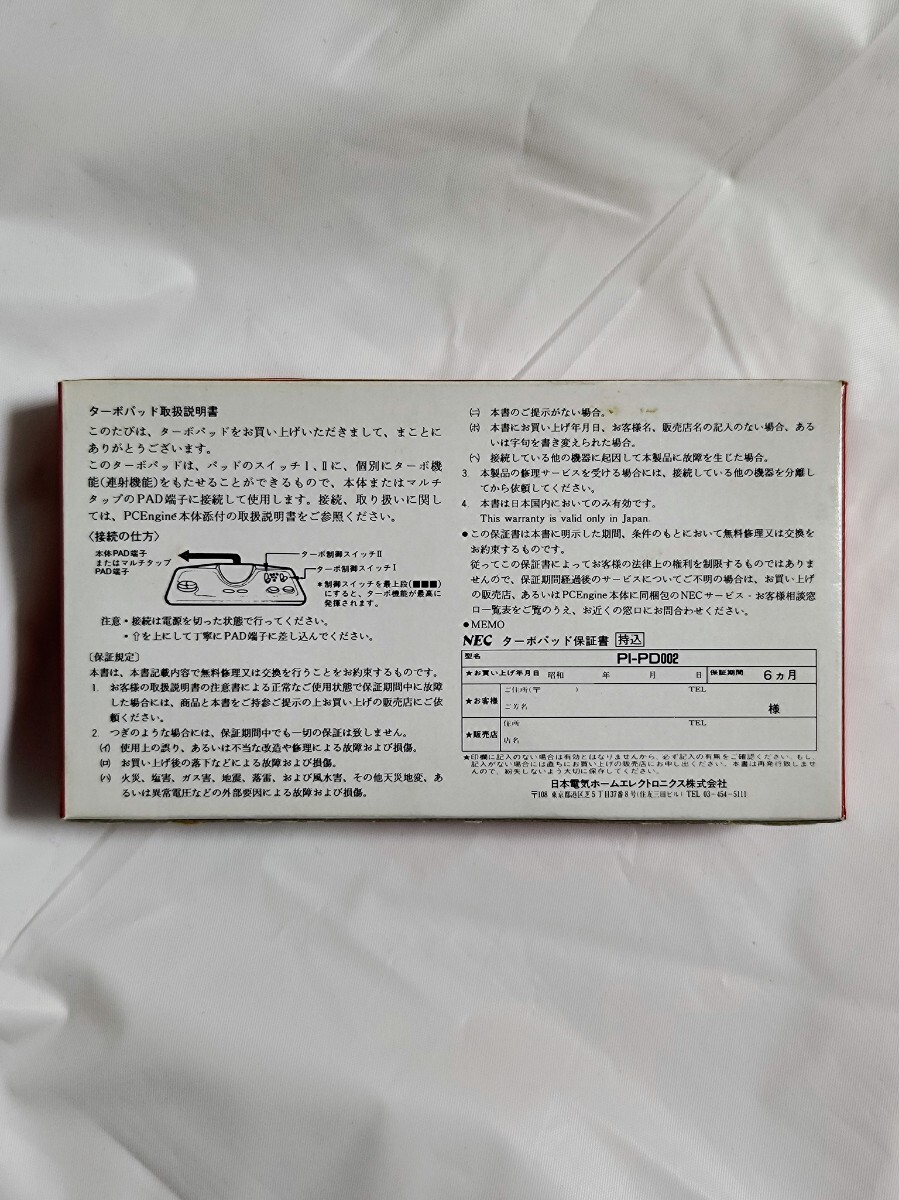 ターボパッド取扱説明書
このたびは、ターボパッドをお買い上げいただきまして、まことに
ありがとうございます。
このターボパッドは、パッドのスイッチⅠ、Ⅱに、個別にターボ機
能(連射機能)をもたせることができるもので、本体またはマルチ
タップのPAD端子に接続して使用します。接続、取り扱いに関し
ては、PCEngine本体添付の取扱説明書をご参照ください。
〈接続の仕方〉
本体PAD端子
またはマルチタップ
PAD端子
ターボ制御スイッチⅡ
ターボ制御スイッチⅠ
*制御スイッチを最上段(■■■)
にすると、ターボ機能が最高に
発揮されます。
注意・接続は電源を切った状態で行ってください。
・⇧を上にして丁寧にPAD端子に差し込んでください。
〔保証規定〕
本書は、本書記載内容で無料修理又は交換を行うことをお約束するものです。
1. お客様の取扱説明書の注意書による正常なご使用状態で保証期間中に故障
した場合には、商品と本書をご持参ご提示の上お買い上げの販売店にご依
頼ください。
2. つぎのような場合には、保証期間中でも一切の保証は致しません。
(イ) 使用上の誤り、あるいは不当な改造や修理による故障および損傷。
(ロ) お買い上げ後の落下などによる故障および損傷。
(ハ) 火災、塩害、ガス害、地震、落雷、および風水害、その他天災地変、あ
るいは異常電圧などの外部要因による故障および損傷。
(ニ) 本書のご提示がない場合。
(ホ) 本書にお買い上げ年月日、お客様名、販売店名の記入のない場合、ある
いは字句を書き変えられた場合。
(ヘ) 接続している他の機器に起因して本製品に故障を生じた場合。
3. 本製品の修理サービスを受ける場合には、接続している他の機器を分離し
てから依頼してください。
4. 本書は日本国内においてのみ有効です。
This warranty is valid only in Japan.
●この保証書は本書に明示した期間、条件のもとにおいて無料修理又は交換を
お約束するものです。
従ってこの保証書によってお客様の法律上の権利を制限するものではありま
せんので、保証期間経過後のサービスについてご不明の場合は、お買い上げ
の販売店、あるいはPCEngine本体に同梱包のNECサービス・お客様相談窓
口一覧表をご覧のうえ、お近くの窓口にお問合わせください。
●MEMO
NEC ターボパッド保証書 持込
型名 PI-PD002
★お買い上げ年月日 昭和 年 月 日 保証期間 6ヵ月
★お客様 ご住所(〒 ) TEL
ご芳名 様
★販売店 住所 TEL
店名
★印欄に記入のない場合は有効とはなりませんから、必ず記入の有無をご確認ください。もし
記入がない場合には直ちにお買い上げの販売店にお申し出ください。本書は再発行致しませ
んので、紛失しないよう大切に保存してください。
日本電気ホームエレクトロニクス株式会社
〒108 東京都港区芝5丁目37番8号(住友三田ビル) TEL 03-454-5111